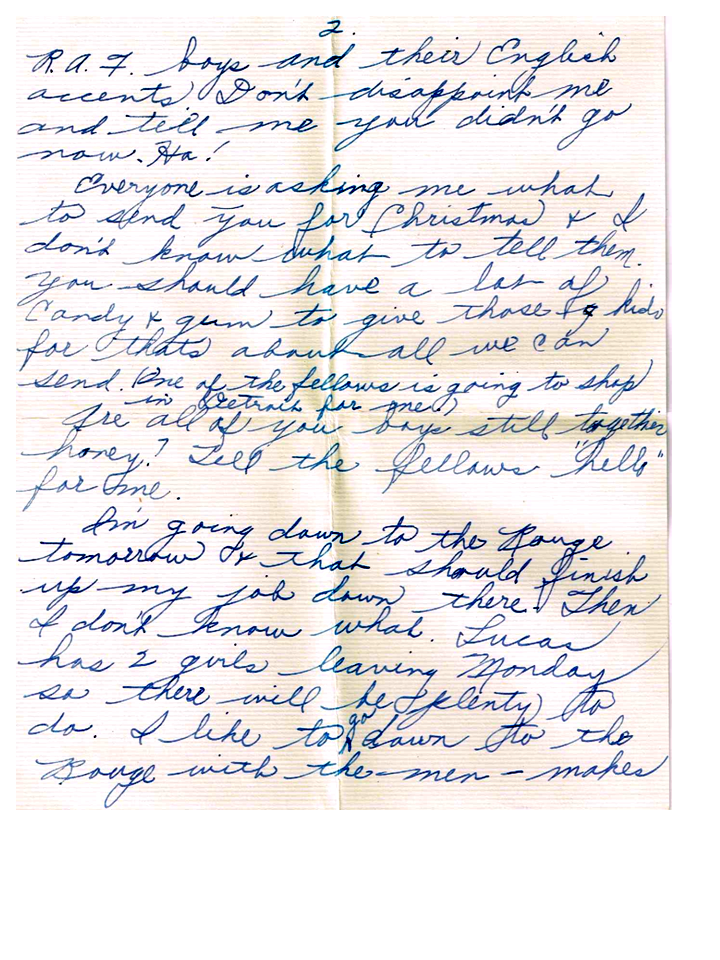 2.
R.A.F. boys and their English
accents. Don't disappoint me
and tell me you didn't go
now. Ha!
Everyone is asking me what
to send you for Christmas & I
don't know what to tell them.
You should have a lot of
Candy & gum to give those kids
for thats about all we can
send. (One of the fellows is going to shop
in Detroit for me.)
Are all of you boys still together
honey? Tell the fellows "hello"
for me.
I'm going down to the Rouge
tomorrow & that should finish
up my job down there. Then
I don't know what. Lucas
has 2 girls leaving Monday
so there will be plenty to
do. I like to go down to the
Rouge with the men - makes